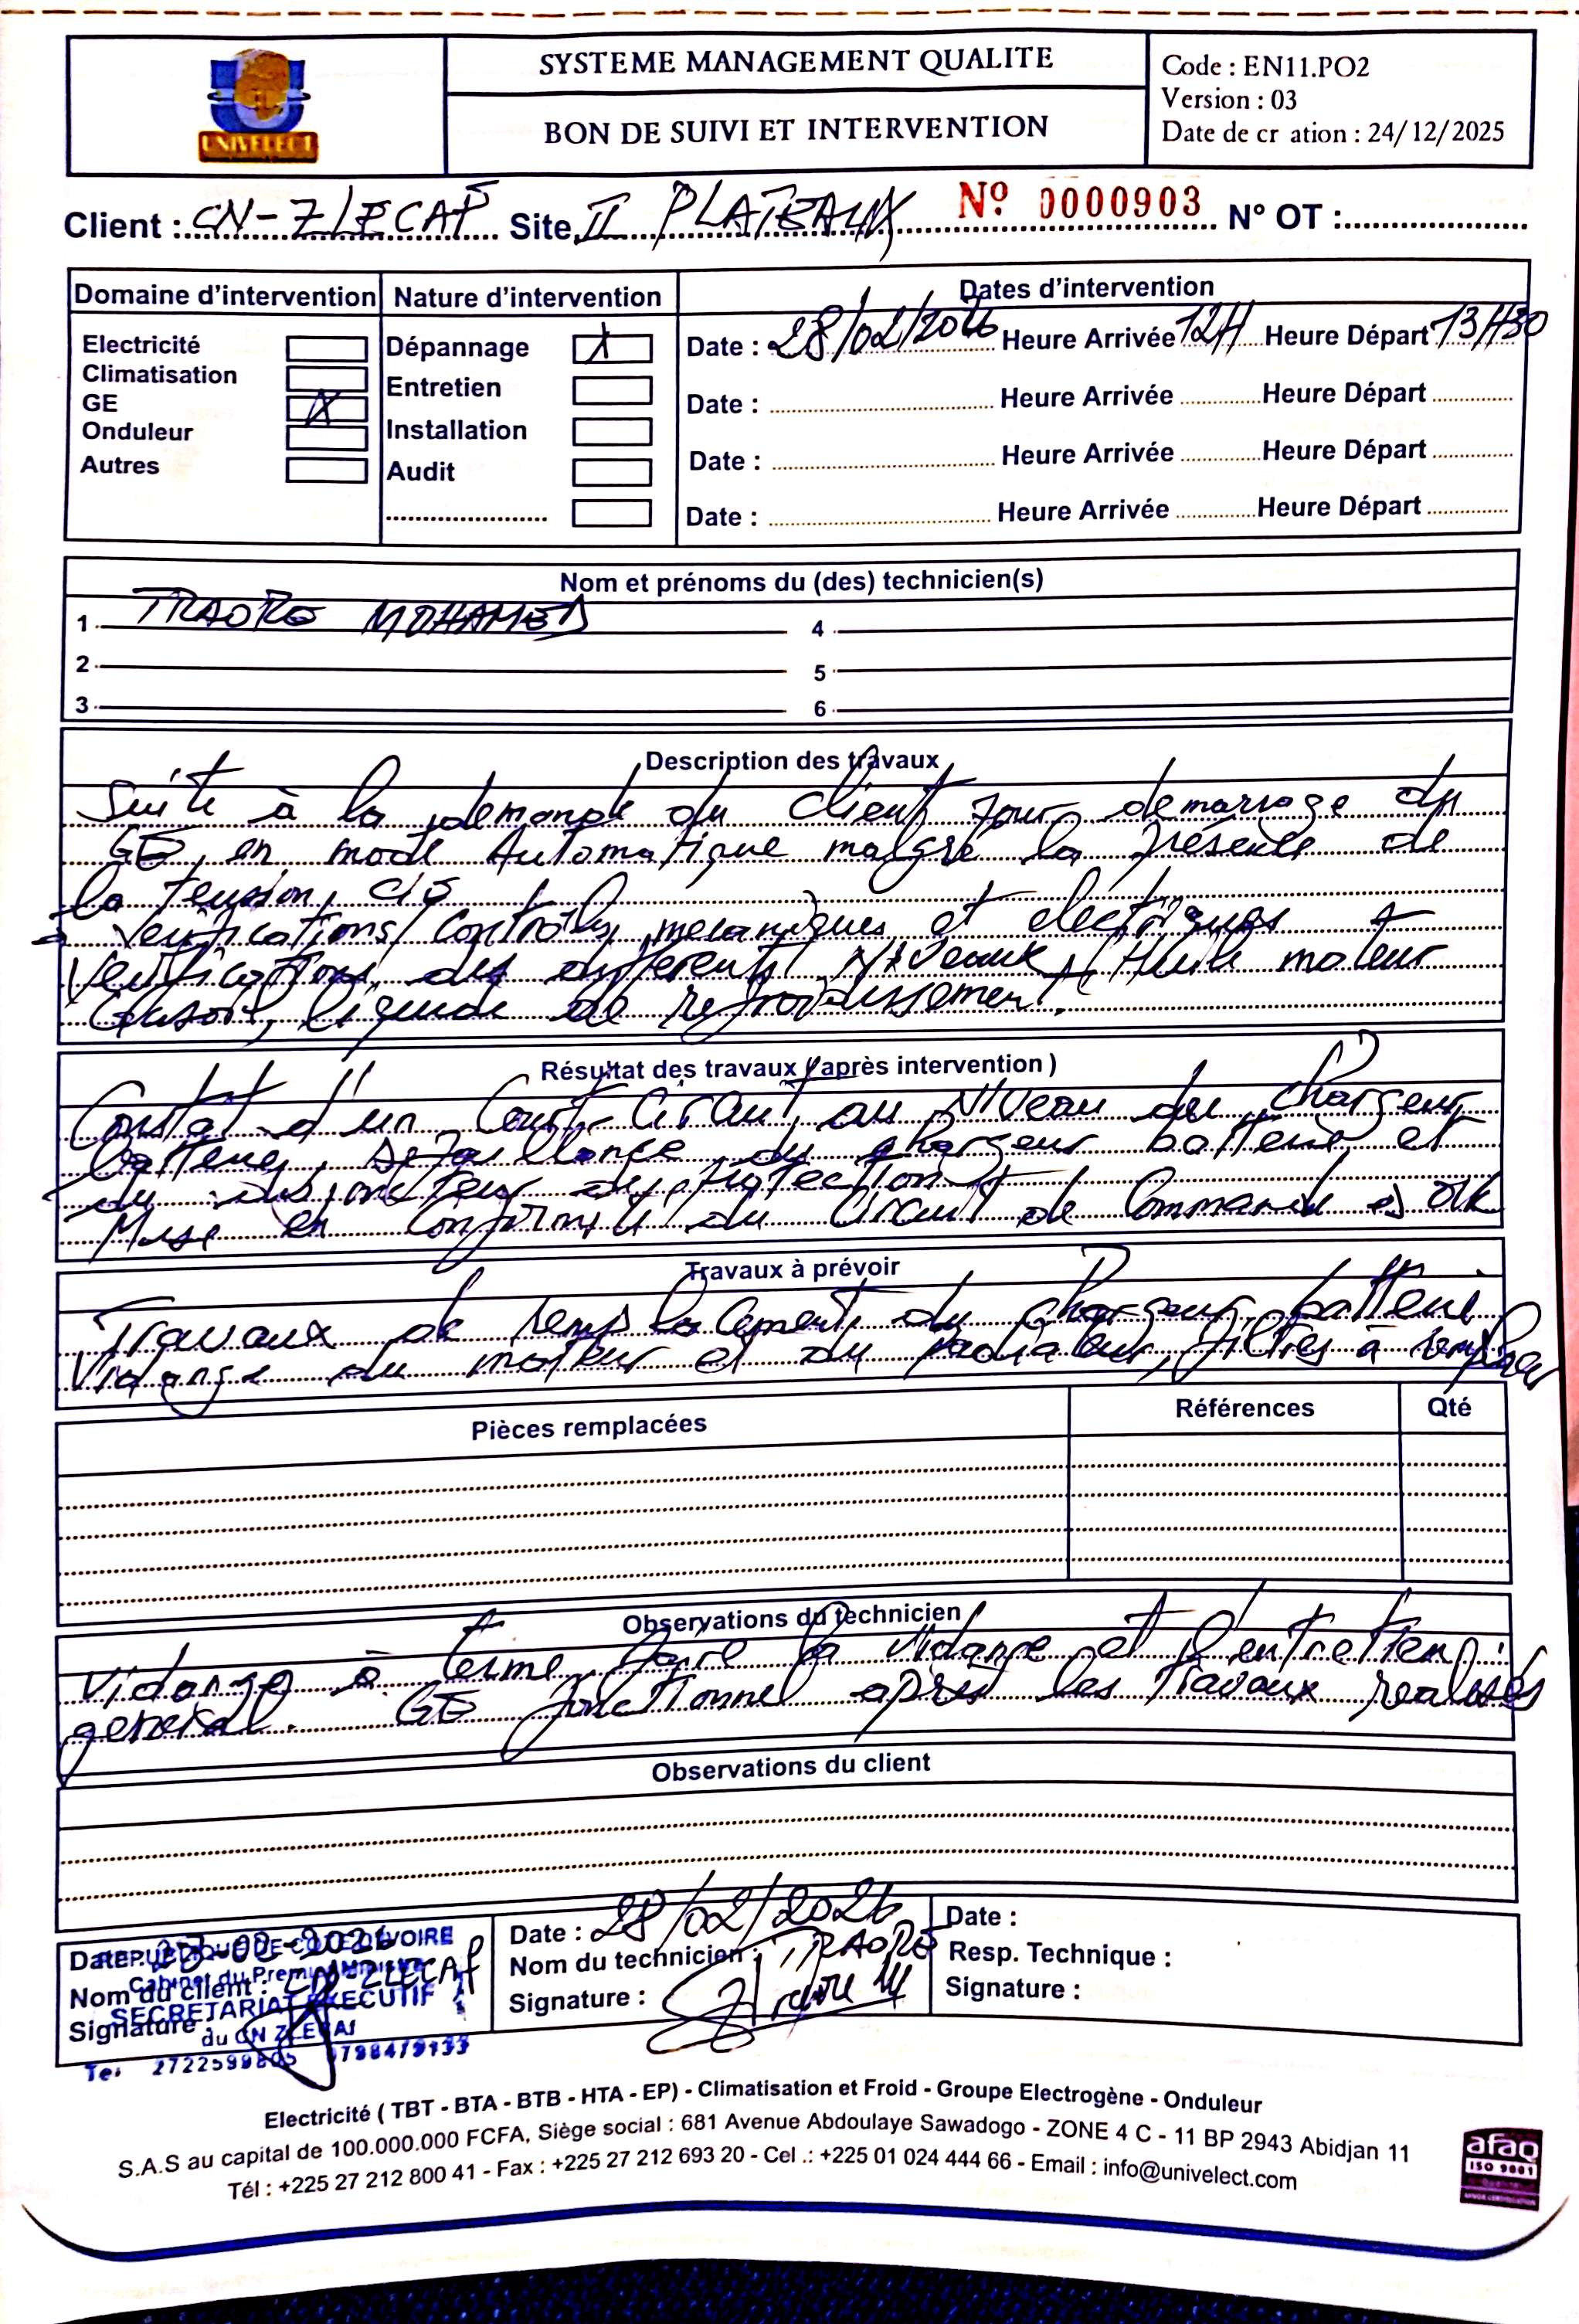 UNIVELECT
SYSTEME MANAGEMENT QUALITE
BON DE SUIVI ET INTERVENTION
Code : EN11.PO2
Version : 03
Date de cr ation : 24/12/2025
Client : CN-ZLECAf Site II PLATEAUX N° 0000903 N° OT :
Domaine d'intervention Nature d'intervention Dates d'intervention
Electricité
Climatisation
GE X
Onduleur
Autres
Dépannage X
Entretien
Installation
Audit
Date : 28/02/2026 Heure Arrivée 12H Heure Départ 13H30
Date : Heure Arrivée Heure Départ
Date : Heure Arrivée Heure Départ
Date : Heure Arrivée Heure Départ
Nom et prénoms du (des) technicien(s)
1 TRAORE MOHAMED 4
2 5
3 6
Description des travaux
Suite à la demande du client pour demarrage du
GE en mode Automatique malgré la présence de
la tension CIE
Verifications/Controles mecaniques et electriques +
verifications des differents Niveaux, Huile moteur
Gasoil, liquide de refroidissement.
Résultat des travaux (après intervention)
Constat d'un Court-Circuit au Niveau du chargeur
batterie, Defaillance du chargeur batterie et
du disjoncteur de protection
Mise en conformité du circuit de Commande ok
Travaux à prévoir
Travaux de remplacement du chargeur batterie
Vidange du moteur et du radiateur, filtres à remplacer
Pièces remplacées Références Qté
Observations du technicien
Vidange à terme faire la vidange et l'entretien
general. GE fonctionnel après les travaux realisés
Observations du client
Date :
Nom du client : CN-ZLECAf
Signature :
REPUBLIQUE DE COTE D'IVOIRE
Cabinet du Premier Ministre
SECRETARIAT EXECUTIF
du CN ZLECAf
Date : 28/02/2026
Nom du technicien : TRAORE
Signature :
Date :
Resp. Technique :
Signature :
Electricité ( TBT - BTA - BTB - HTA - EP) - Climatisation et Froid - Groupe Electrogène - Onduleur
S.A.S au capital de 100.000.000 FCFA, Siège social : 681 Avenue Abdoulaye Sawadogo - ZONE 4 C - 11 BP 2943 Abidjan 11
Tél : +225 27 212 800 41 - Fax : +225 27 212 693 20 - Cel .: +225 01 024 444 66 - Email : info@univelect.com
afaq
ISO 9001